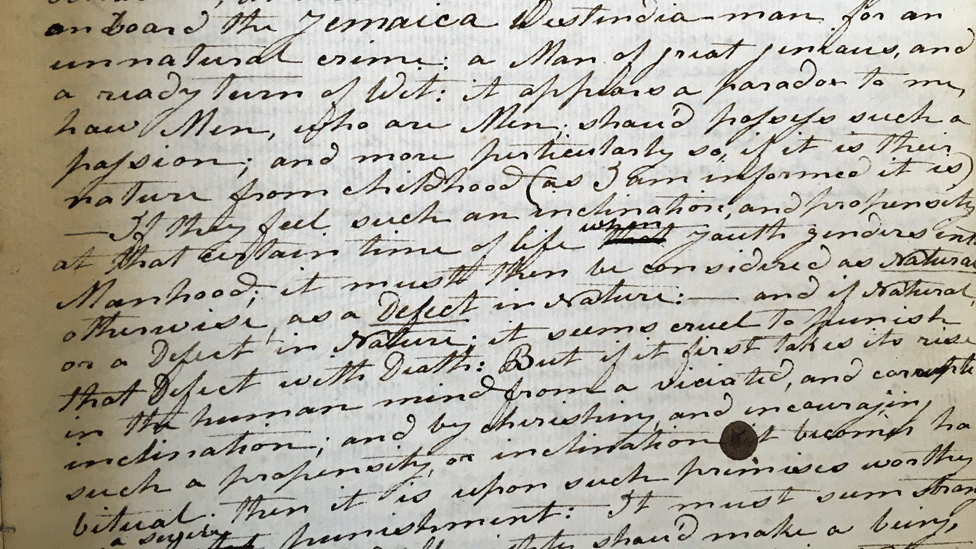 on board the Jemaica Westindia-man for an
unnatural crime: a Man of great jenious, and
a ready turn of Wit: it appears a paradox to me,
how Men, who are Men, shou'd possess such a
passion; and more perticularly so, if it is their
nature from childhood (as I am informed it is)
—If they feel such an inclination, and propensity
at that certain time of life when youth zenders into
Manhood; it must then be considered as Natural
otherwise, as a Defect in Nature:— and if Natural
or a Defect in Nature; it seems cruel to punish
that Defect with Death: But if it first takes its rise
in the human mind from a viciated, and corrupted
inclination; and by cherishing and incouraging
such a propensity, or inclination it becomes ha
bitual. then it is upon such premises worthy
punishment: It must sum stran
shou'd make a being,